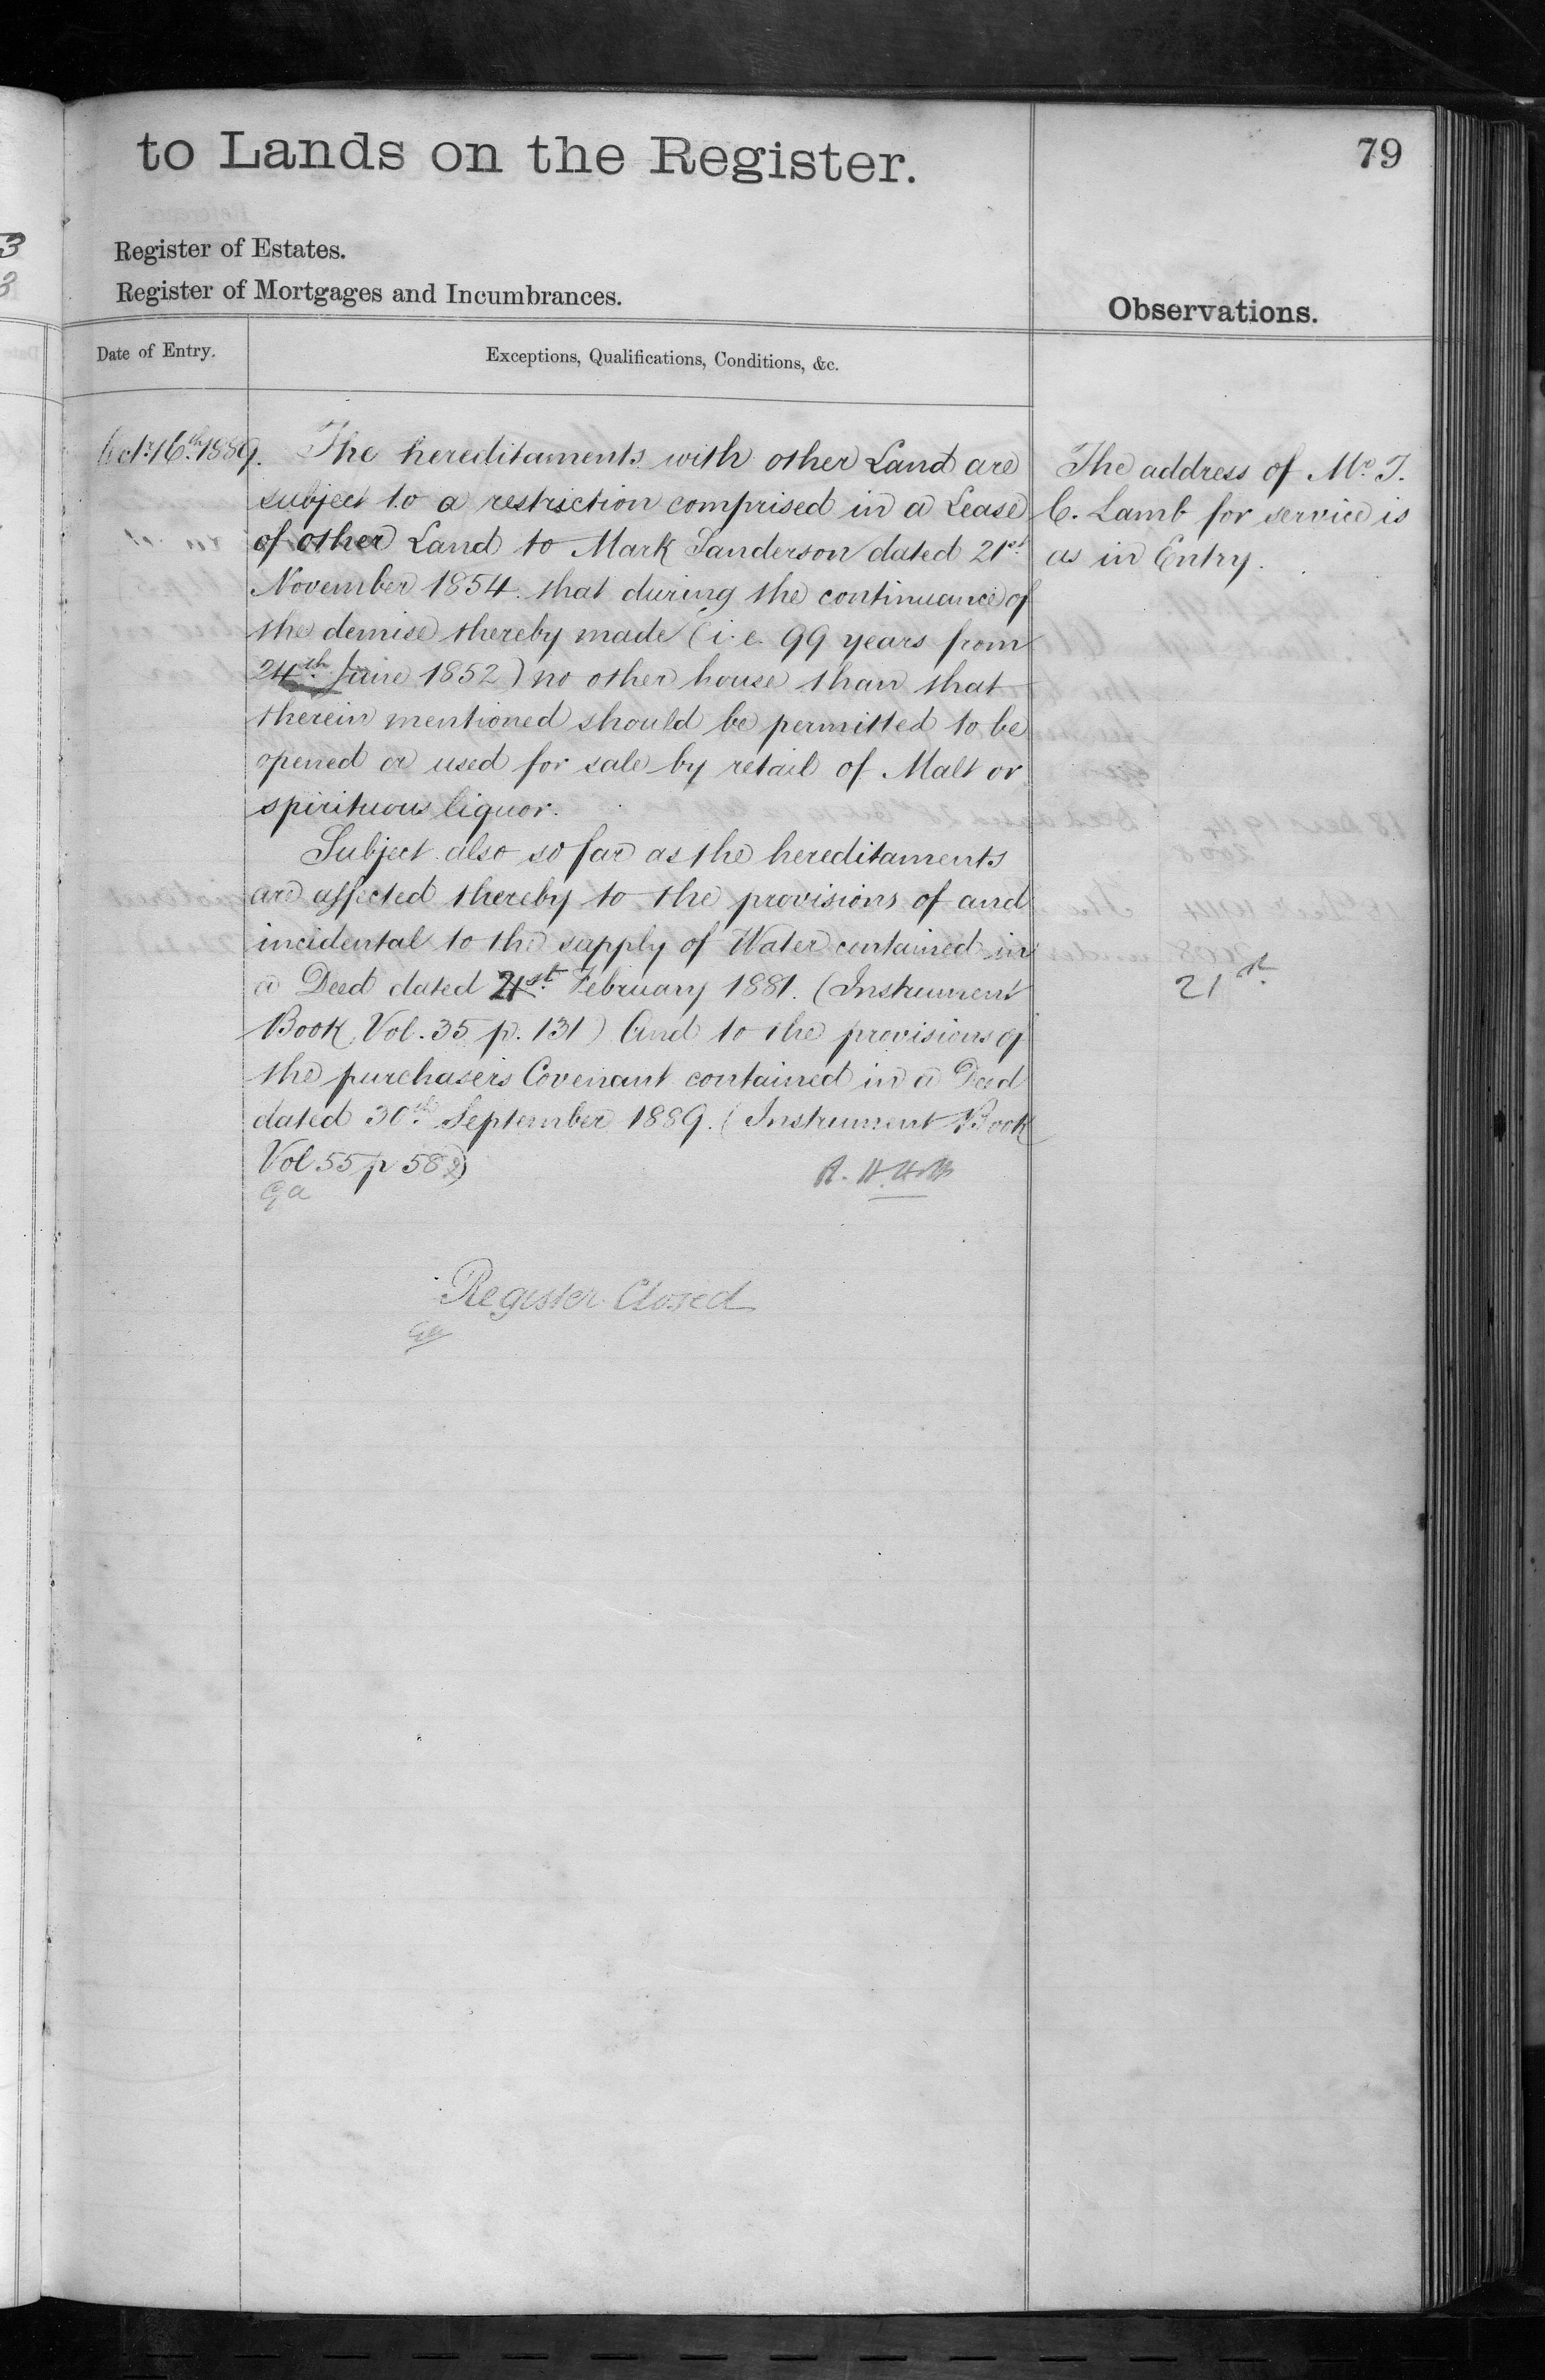 to Lands on the Register.
79
Register of Estates.
Register of Mortgages and Incumbrances.
Observations.
Date of Entry.
Exceptions, Qualifications, Conditions, &c.
Octr. 16th. 1889.
The hereditaments with other Land are
subject to a restriction comprised in a Lease
of other Land to Mark Sanderson dated 21st
November 1854. that during the continuance of
the demise thereby made (i.e. 99 years from
24th. June 1852) no other house than that
therein mentioned should be permitted to be
opened or used for sale by retail of Malt or
spirituous liquor.
Subject also so far as the hereditaments
are affected thereby to the provisions of and
incidental to the supply of Water contained in
a Deed dated 21st. February 1881. (Instrument
Book, Vol. 35 p. 131) And to the provisions of
the purchasers Covenant contained in a Deed
dated 30th. September 1889. (Instrument Book
Vol 55 p 582)
Register Closed
The address of Mr. T.
C. Lamb for service is
as in Entry.
21st.